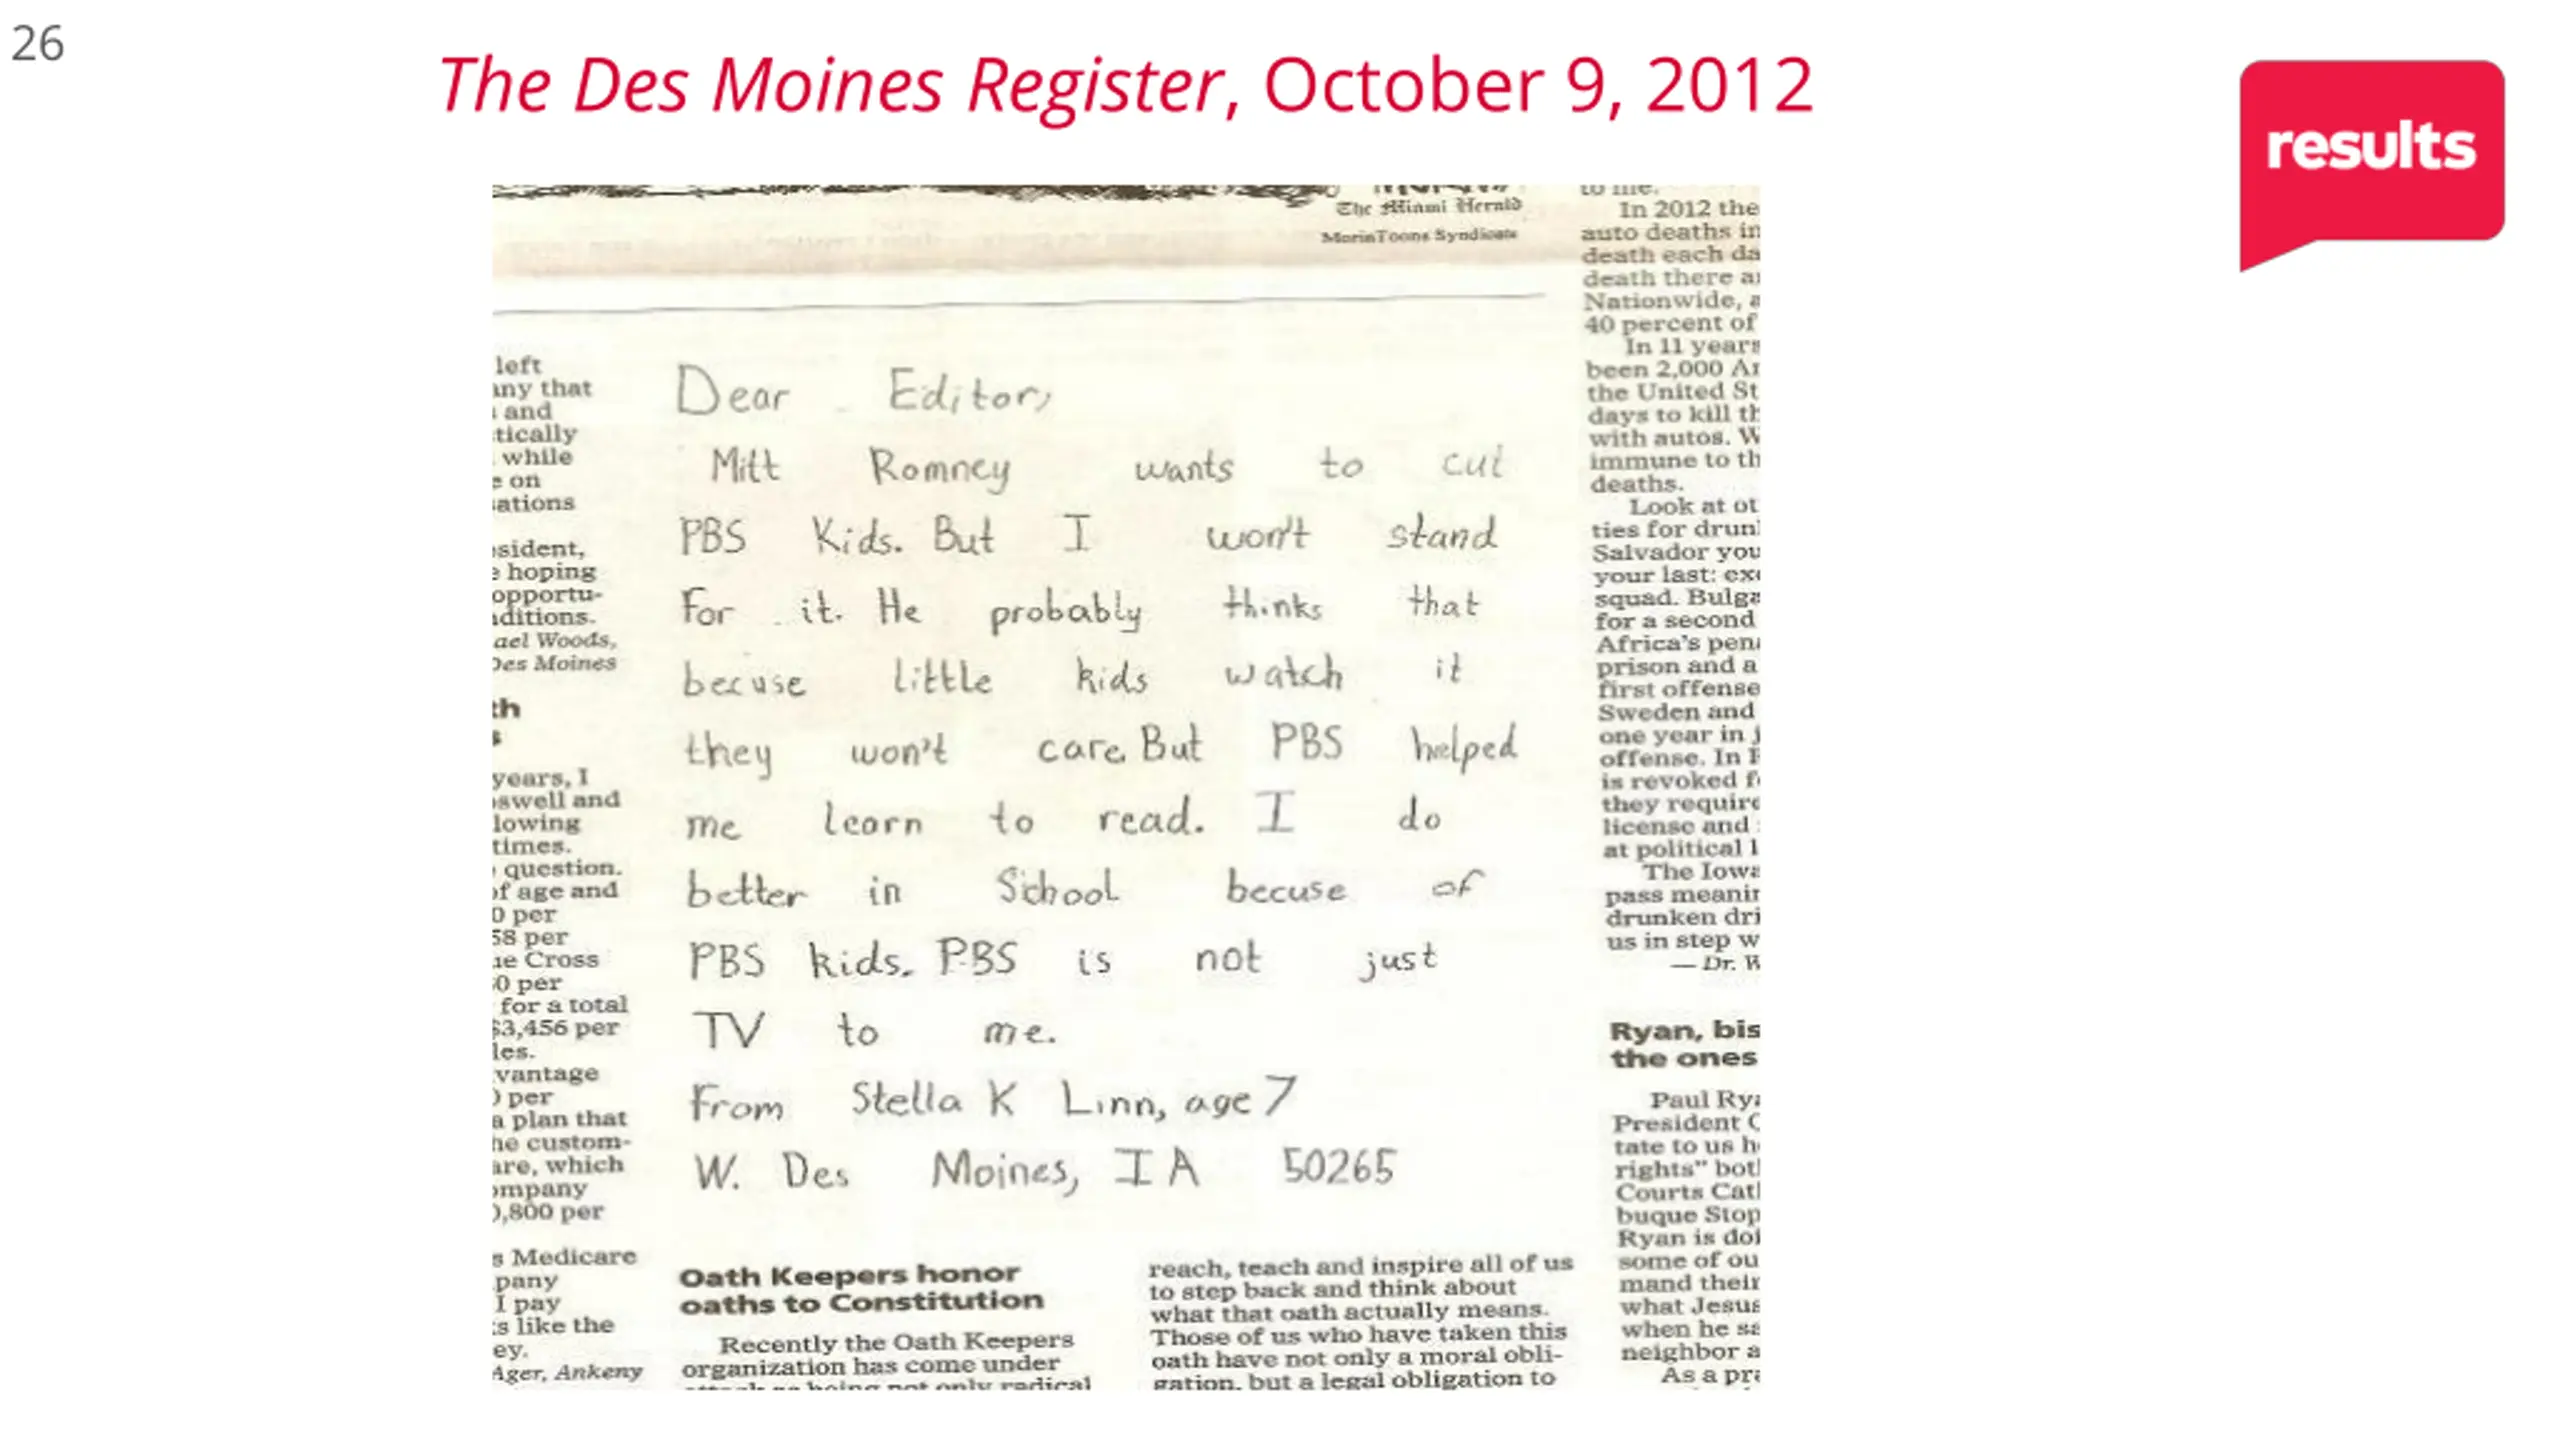 26
The Des Moines Register, October 9, 2012
results
The Miami Herald
MorinToons Syndicate
left
any that
and
tically
while
e on
sations
sident,
e hoping
opportu-
ditions.
ael Woods,
Des Moines
th
years, I
swell and
lowing
times.
question.
of age and
0 per
58 per
ue Cross
0 per
for a total
$3,456 per
les.
vantage
0 per
a plan that
he custom-
are, which
ompany
0,800 per
s Medicare
pany
I pay
s like the
ey.
Ager, Ankeny
Dear Editor,
Mitt Romney wants to cut
PBS Kids. But I won't stand
For it. He probably thinks that
becuse little kids watch it
they won't care. But PBS helped
me learn to read. I do
better in School becuse of
PBS kids. PBS is not just
TV to me.
From Stella K Linn, age 7
W. Des Moines, IA 50265
Oath Keepers honor
oaths to Constitution
Recently the Oath Keepers
organization has come under
attack as being not only radical
reach, teach and inspire all of us
to step back and think about
what that oath actually means.
Those of us who have taken this
oath have not only a moral obli-
gation, but a legal obligation to
to me.
In 2012 the
auto deaths in
death each da
death there a
Nationwide, a
40 percent of
In 11 years
been 2,000 A
the United St
days to kill th
with autos. W
immune to th
deaths.
Look at ot
ties for drun
Salvador you
your last: ex
squad. Bulga
for a second
Africa's pen
prison and a
first offense
Sweden and
one year in j
offense. In
is revoked f
they require
license and
at political l
The Iowa
pass meanin
drunken dri
us in step w
— Dr. W
Ryan, bis
the ones
Paul Rya
President O
tate to us h
rights" bot
Courts Cat
buque Stop
Ryan is doi
some of ou
mand their
what Jesus
when he sa
neighbor a
As a pra